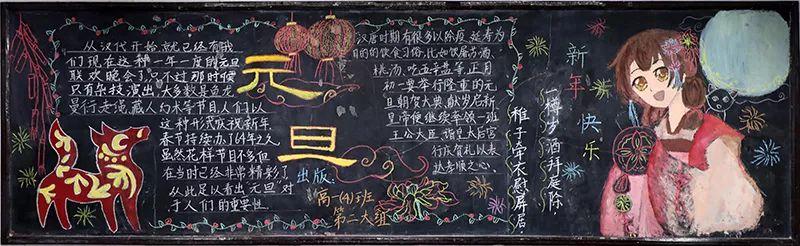 从汉代开始就已经有我
们现在这种一年一度的元旦
联欢晚会了。不过那时候
只有杂技演出,大多数是鱼龙
曼衍走绳藏人幻术等节目人们以
这种形式庆祝新年.
春节持续办了4年之久
虽然花样节目不多但
在当时已经非常精彩了
从此足以看出"元旦"对
于人们的重要性.
元
旦
出版
高一(4)班
第二大组
汉唐时期有很多以除疫、延寿为
目的的饮食习俗,比如饮屠苏酒、
桃汤、吃五辛盘等.正月
初一要举行隆重的元
旦朝贺大典,献岁启新
皇帝便继续率领一班
王公大臣,诣皇太后宫
行庆贺礼以表
达孝顺之心.
一樽岁酒拜庭除
稚子牵衣慰屏居
新年快乐